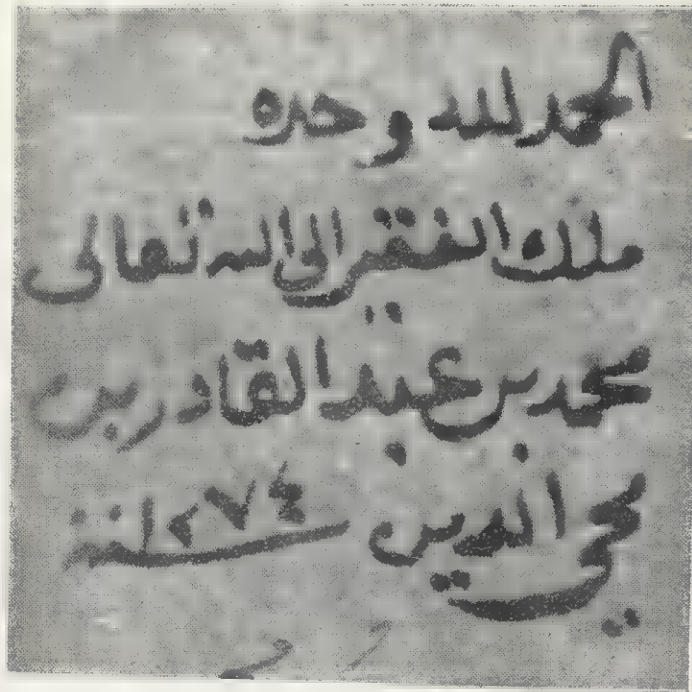 الحمد لله وحده
ملك الفقير الى الله تعالى
محمد بن عبد القادر بن
محيي الدين سنة ١٢٧٤